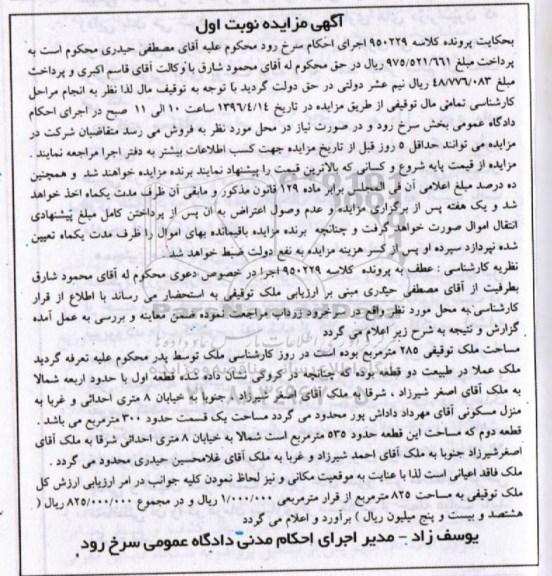 آگهی مزایده نوبت اول
بحکایت پرونده کلاسه ۹۵۰۲۲۹ اجرای احکام سرخ رود محکوم علیه آقای مصطفی حیدری محکوم است به
پرداخت مبلغ ۹۷۵/۵۲۱/۶۶۱ ریال در حق محکوم له آقای محمود شارق با وکالت آقای قاسم اکبری و پرداخت
مبلغ ۴۸/۷۷۶/۰۸۳ ریال نیم عشر دولتی در حق دولت گردید با توجه به توقیف مال لذا نظر به انجام مراحل
کارشناسی تمامی مال توقیفی از طریق مزایده در تاریخ ۱۳۹۶/۴/۱۴ ساعت ۱۰ الی ۱۱ صبح در اجرای احکام
دادگاه عمومی بخش سرخ رود و در صورت نیاز در محل مورد نظر به فروش می رسد متقاضیان شرکت در
مزایده می توانند حداقل ۵ روز قبل از تاریخ مزایده جهت کسب اطلاعات بیشتر به دفتر اجرا مراجعه نمایند .
مزایده از قیمت پایه شروع و کسانی که بالاترین قیمت را پیشنهاد نمایند برنده مزایده خواهند شد و همچنین
ده درصد مبلغ اعلامی آن فی المجلس برابر ماده ۱۲۹ قانون مذکور و مابقی آن ظرف مدت یکماه اخذ خواهد
شد و یک هفته پس از برگزاری مزایده و عدم وصول اعتراض به آن پس از پرداختن کامل مبلغ پیشنهادی
انتقال اموال صورت خواهد گرفت و چنانچه برنده مزایده باقیمانده بهای اموال را ظرف مدت یکماه تعیین
شده نپردازد سپرده او پس از کسر هزینه مزایده به نفع دولت ضبط خواهد شد .
نظریه کارشناسی : عطف به پرونده کلاسه ۹۵۰۲۲۹ اجرا در خصوص دعوی محکوم له آقای محمود شارق
بطرفیت از آقای مصطفی حیدری مبنی بر ارزیابی ملک توقیفی به استحضار می رساند با اطلاع از قرار
کارشناسی به محل مورد نظر واقع در سرخرود زرداب مراجعت نموده ضمن معاینه و بررسی به عمل آمده
گزارش و نتیجه به شرح زیر اعلام می گردد
مساحت ملک توقیفی ۲۸۵ مترمربع بوده است در روز کارشناسی ملک توسط پدر محکوم علیه تعرفه گردید
ملک عملا در طبیعت دو قطعه بوده که چنانچه در کروکی نشان داده شده قطعه اول با حدود اربعه شمالا
به ملک آقای اصغر شیرزاد ، شرقا به ملک آقای اصغر شیرزاد ، جنوبا به خیابان ۸ متری احداثی و غربا به
منزل مسکونی آقای مهرداد داداش پور محدود می گردد مساحت یک قسمت حدود ۳۰۰ مترمربع می باشد .
قطعه دوم که مساحت این قطعه حدود ۵۳۵ مترمربع است شمالا به خیابان ۸ متری احداثی شرقا به ملک آقای
اصغرشیرزاد جنوبا به ملک آقای احمد شیرزاد و غربا به ملک آقای غلامحسین حیدری محدود می گردد .
ملک فاقد اعیانی است لذا با عنایت به موقعیت مکانی و نیز لحاظ نمودن کلیه جوانب در امر ارزیابی ارزش کل
ملک توقیفی به مساحت ۸۲۵ مترمربع از قرار مترمربعی ۱/۰۰۰/۰۰۰ ریال و در مجموع ۸۲۵/۰۰۰/۰۰۰ ریال (
هشتصد و بیست و پنج میلیون ریال ) برآورد و اعلام می گردد
یوسف زاد - مدیر اجرای احکام مدنی دادگاه عمومی سرخ رود